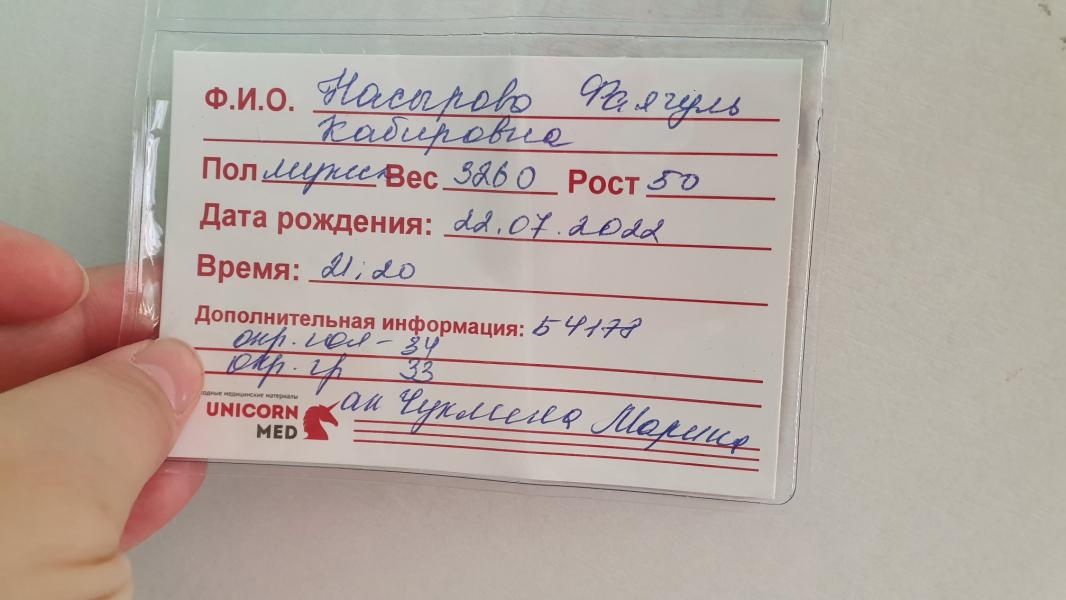 Ф.И.О. Насырова Фаягуль
Кабировна
Пол мужск Вес 3260 Рост 50
Дата рождения: 22.07.2022
Время: 21:20
Дополнительная информация: 54178
окр. гол - 34
окр. гр 33
одные медицинские материалы
UNICORN
MED
ак Чуклина Марина